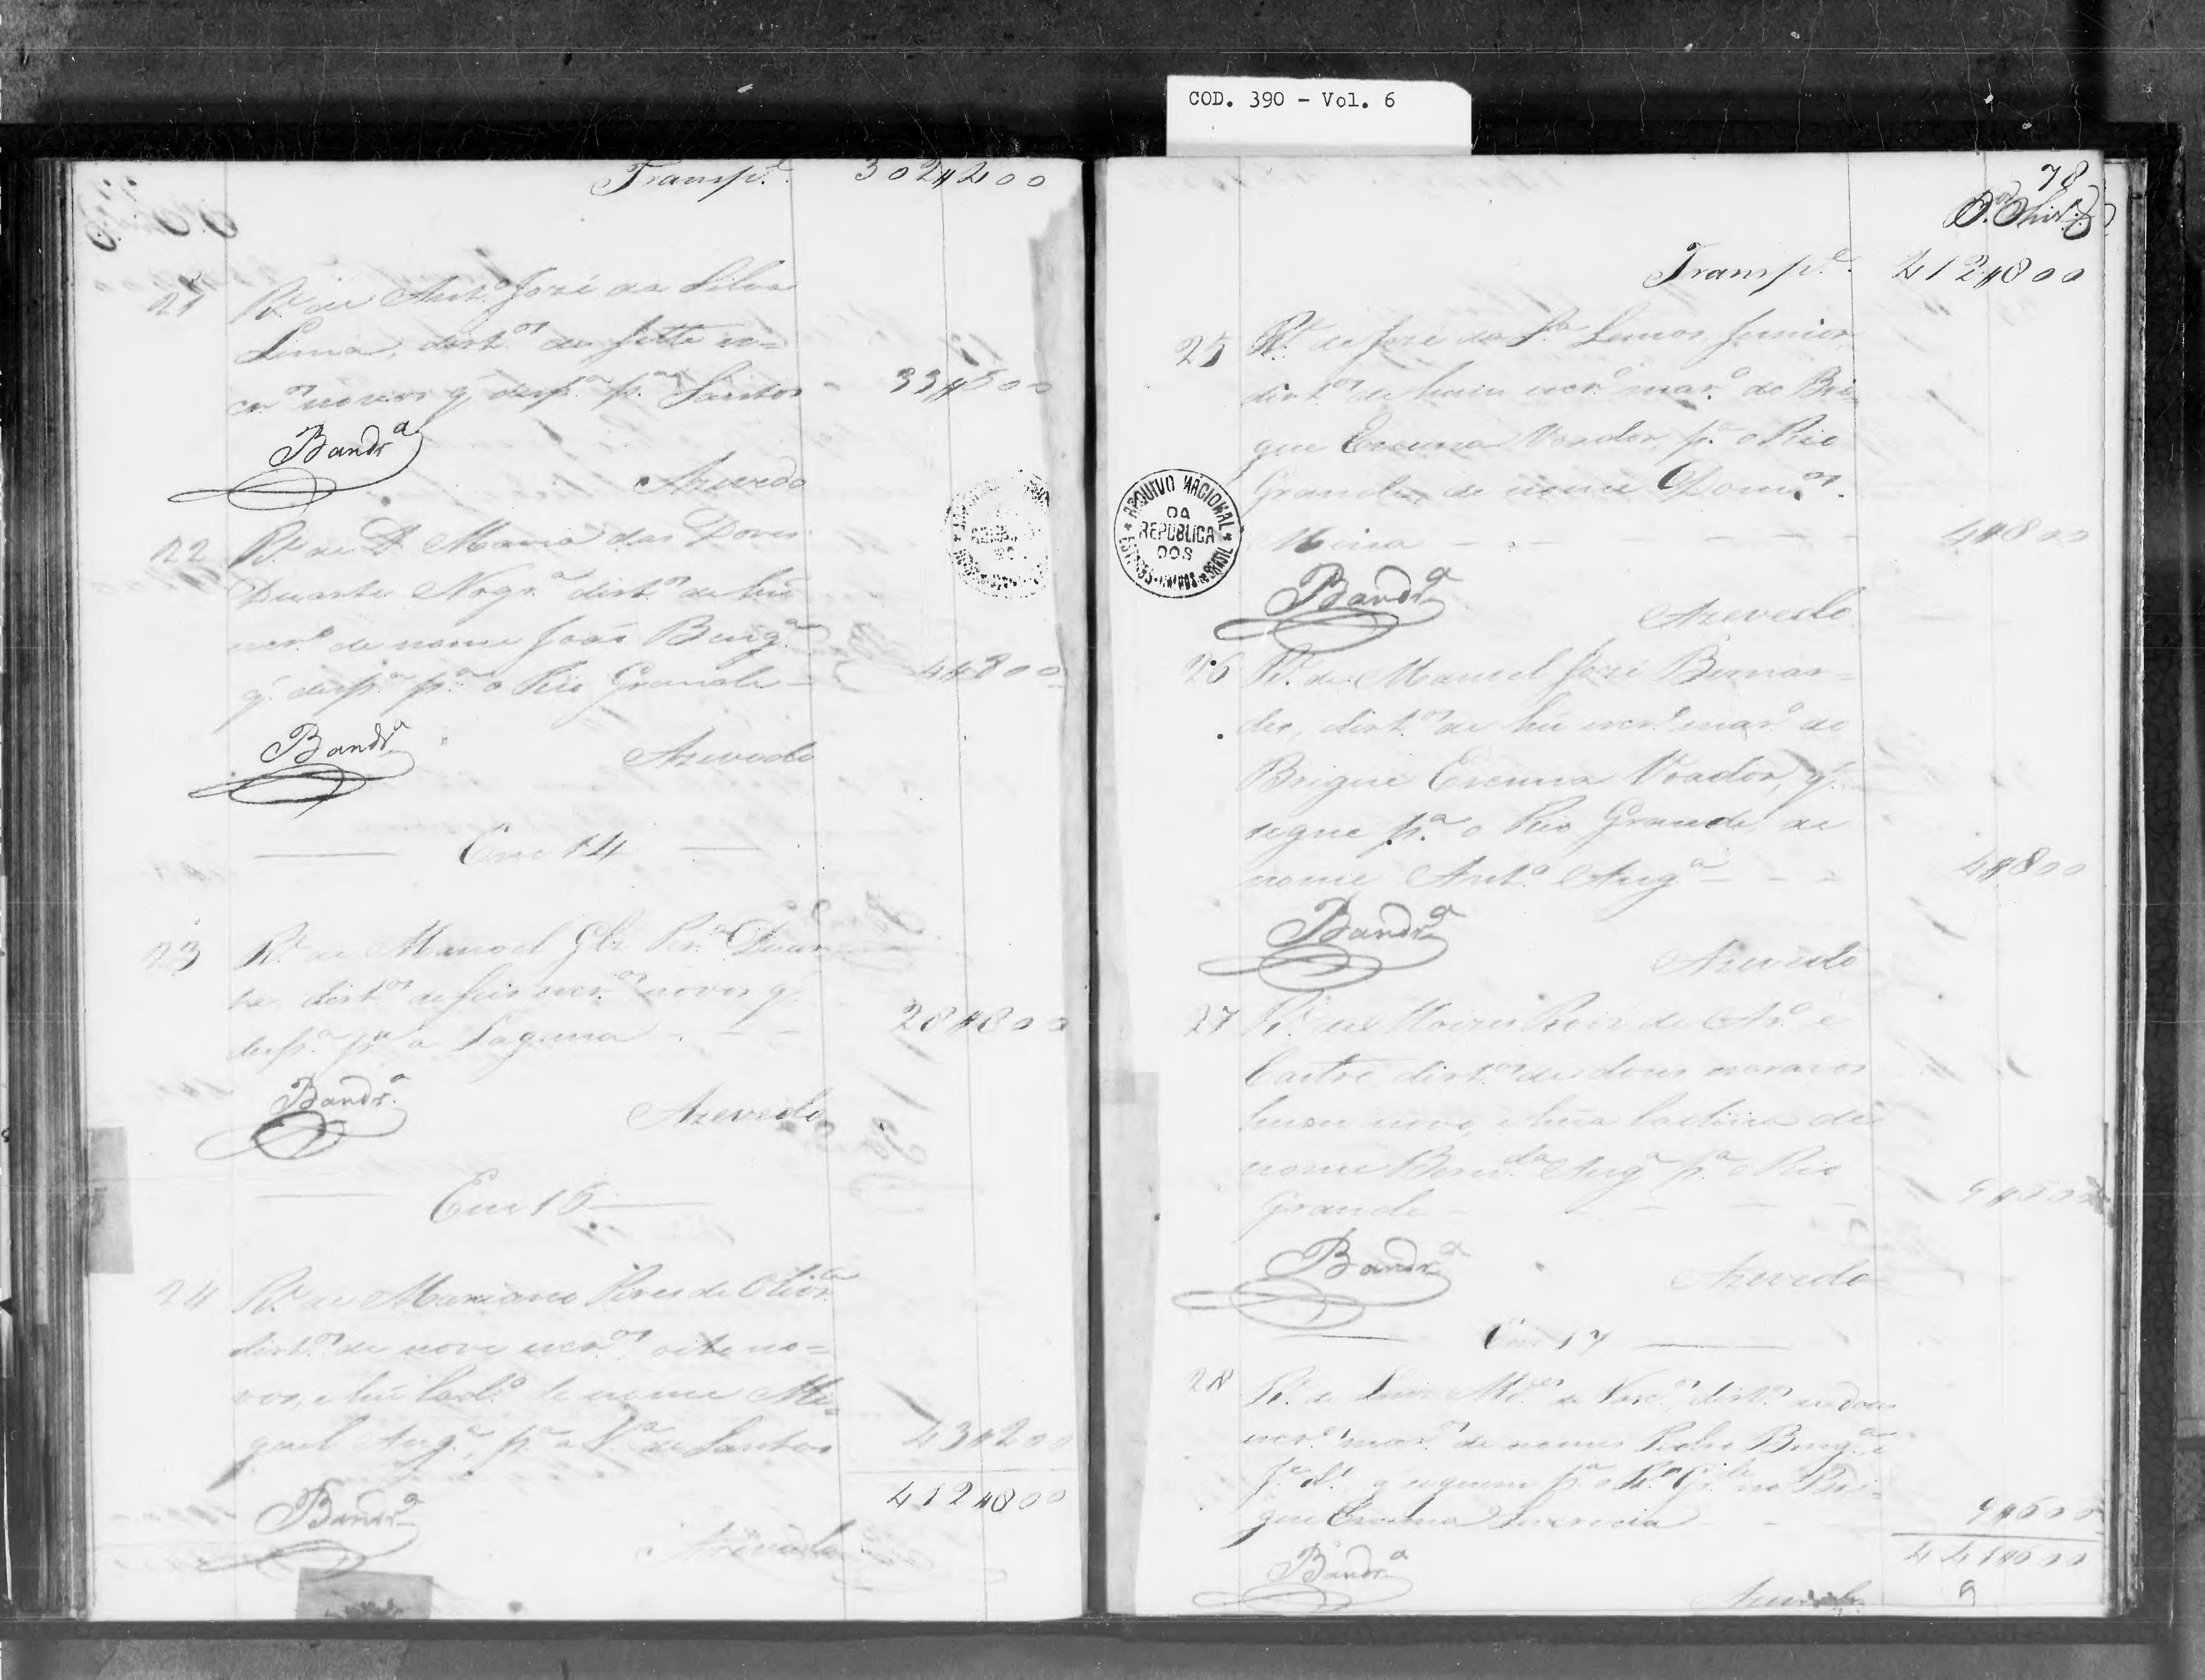 COD. 390 - Vol. 6
Transp.e 302#400
21 R.e de Ant.o José da Silva
Lima, dirt.os de sette es=
cr.os novos q' desp.a p.a Santos - 33#600
Bandr.a
Azevedo
22 R.e de D. Maria das Dores
Duarte Nogr.a dirt.os de hũ
escr.o de nome João Beng.a
q' desp.a p.a o Rio Grande - 4#800
Bandr.a
Azevedo
Em 14
23 R.e de Manoel Glz Per.a Duar=
te dirt.os de seis escr.os novos q'
desp.a p.a a Laguna - - 28#800
Bandr.a
Azevedo
Em 15
24 R.e de Mariano Pires de Olivr.a
dirt.os de nove escr.os oito no=
vos, e hũ lad.o de nome Mi=
guel Ang.a, p.a a V.a de Santos 43#200
412#800
Bandr.a
Azevedo
78
Transp.e 412#800
25 R.e de José da S.a Lemos Junior
dirt.os de hum escr.o mar.o do Bri=
gue Escuna Voador, p.a o Rio
Grande, de nome Dom.os
Mina - - - - - 4#800
ARQUIVO NACIONAL
DA
REPUBLICA
DOS
ESTADOS-UNIDOS-BRASIL
Bandr.a
Azevedo
26 R.e de Manoel José Bernar=
des, dirt.os de hũ escr.o mar.o do
Brigue Escuna Voador, q'
segue p.a o Rio Grande, de
nome Ant.o Ang.a - - - 4#800
Bandr.a
Azevedo
27 R.e de Moizes Roiz de Ar.o e
Castro dirt.os de dous escravos
hum novo, e hũa ladina de
nome Ang.a p.a o Rio
Grande - - - - - 9#600
Bandr.a
Azevedo
Em 17
28 R.e de Luis de Vasc.os, dirt.os de dous
escr.os mar.os de nomes Pedro Beng.a e
q' seguem p.a o R.o Gr.de no Bri=
gue Escuna Lucrecia - - 9#600
441#600
Bandr.a
Azevedo